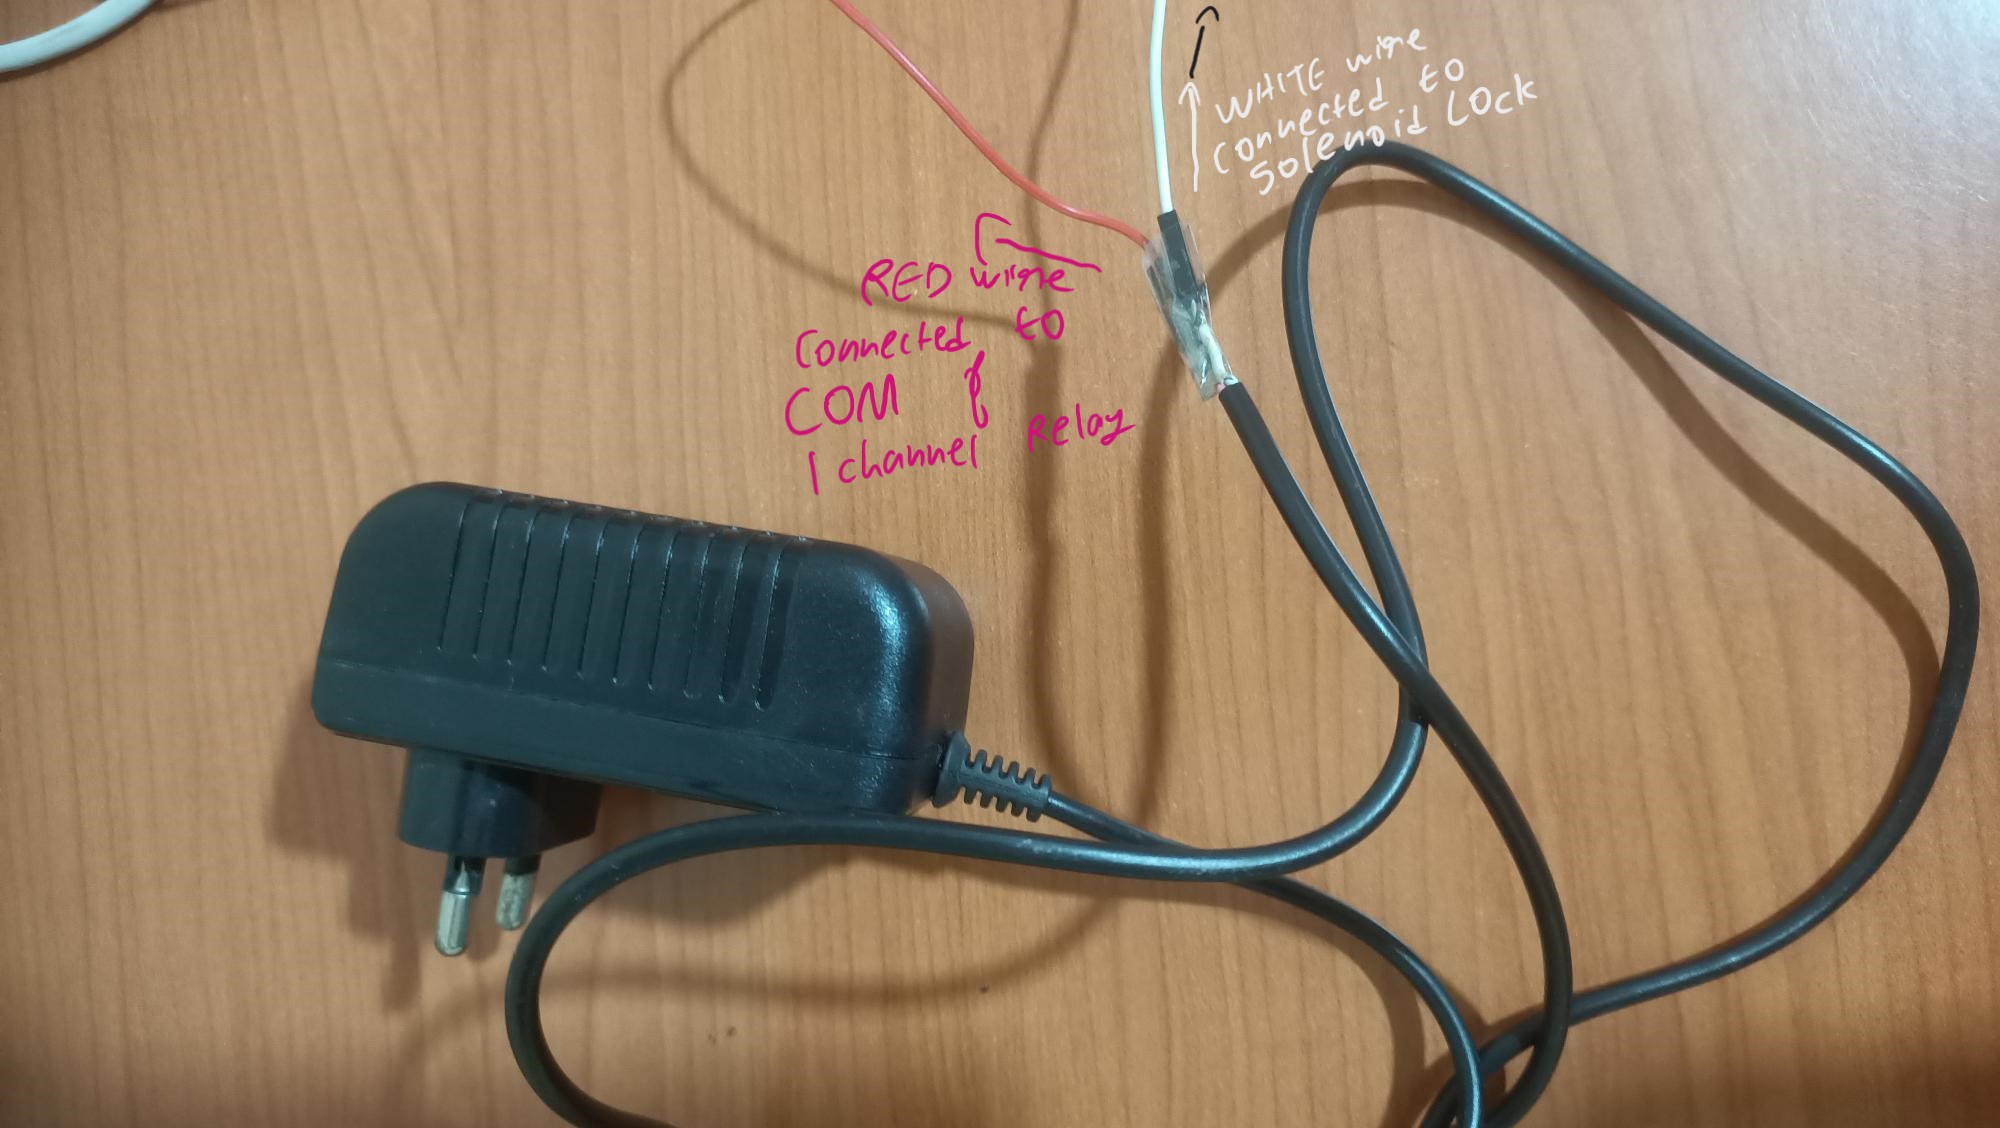 WHITE wire
connected to
Solenoid LOCK
RED wire
connected to
COM of
1 channel Relay